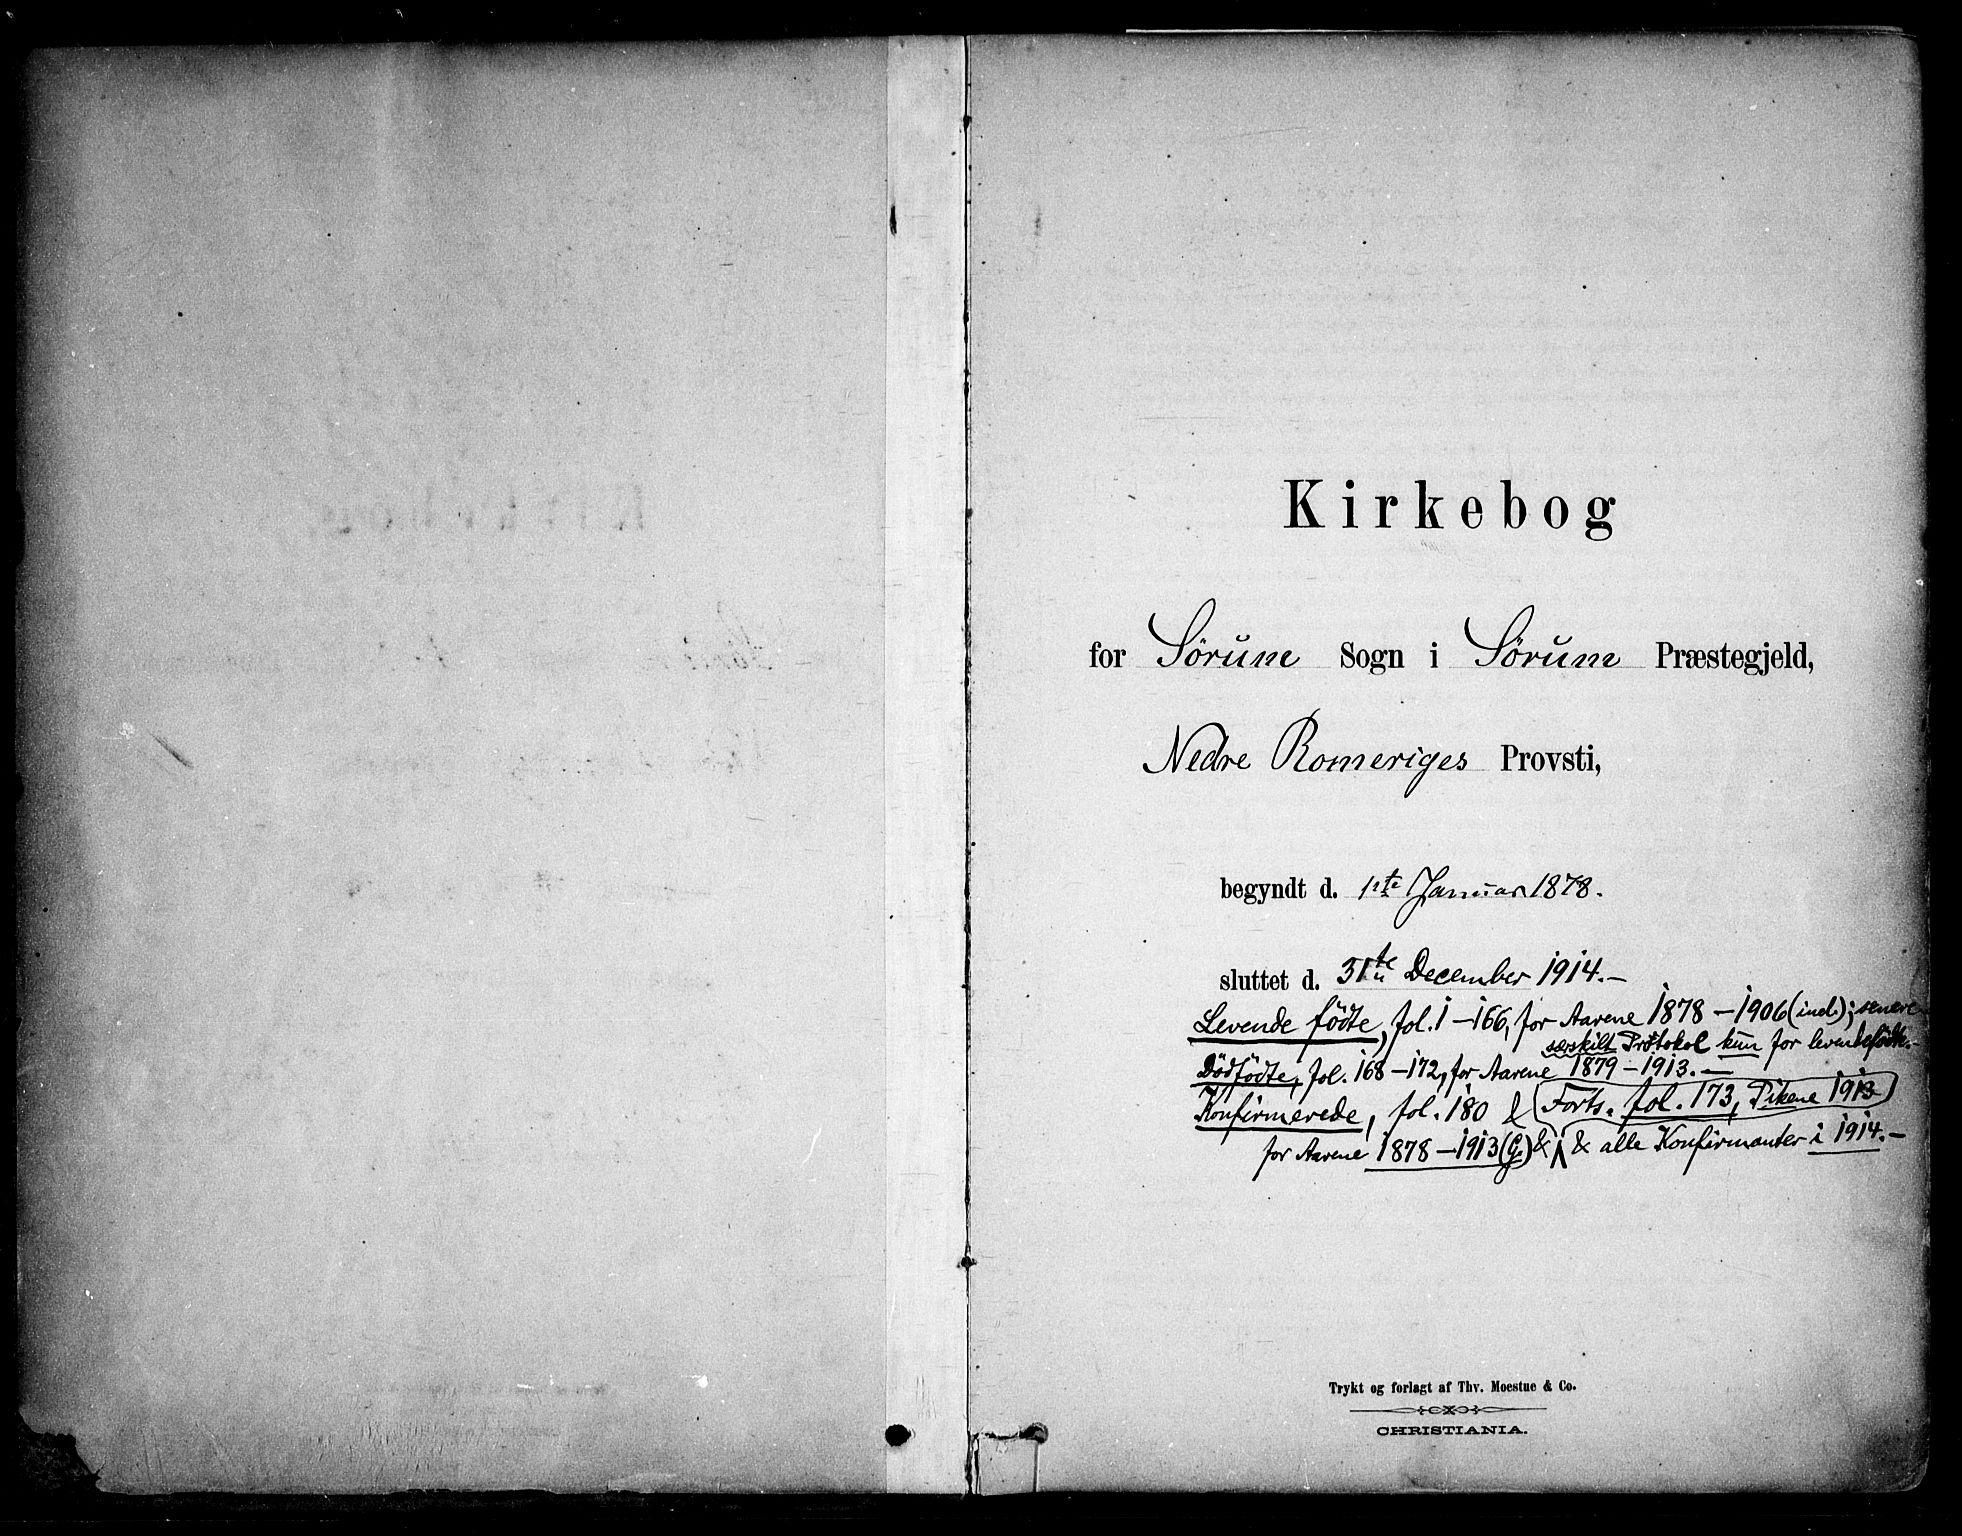 Kirkebog
for Sørum Sogn i Sørum Præstegjeld,
Nedre Romeriges Provsti,
begyndt d. 1ste Januar 1878.
sluttet d. 31te December 1914.—
Levende fødte, fol. 1—166, for Aarene 1878—1906 (incl.); senere
særskilt Protokol kun for levendefødte.—
Dødfødte, fol. 168—172, for Aarene 1879—1913.—
Konfirmerede, fol. 180 & (Forts. fol. 173, Pikene 1913)
for Aarene 1878—1913 (G.) & & alle Konfirmanter i 1914.—
Trykt og forlagt af Thv. Moestue & Co.
CHRISTIANIA.